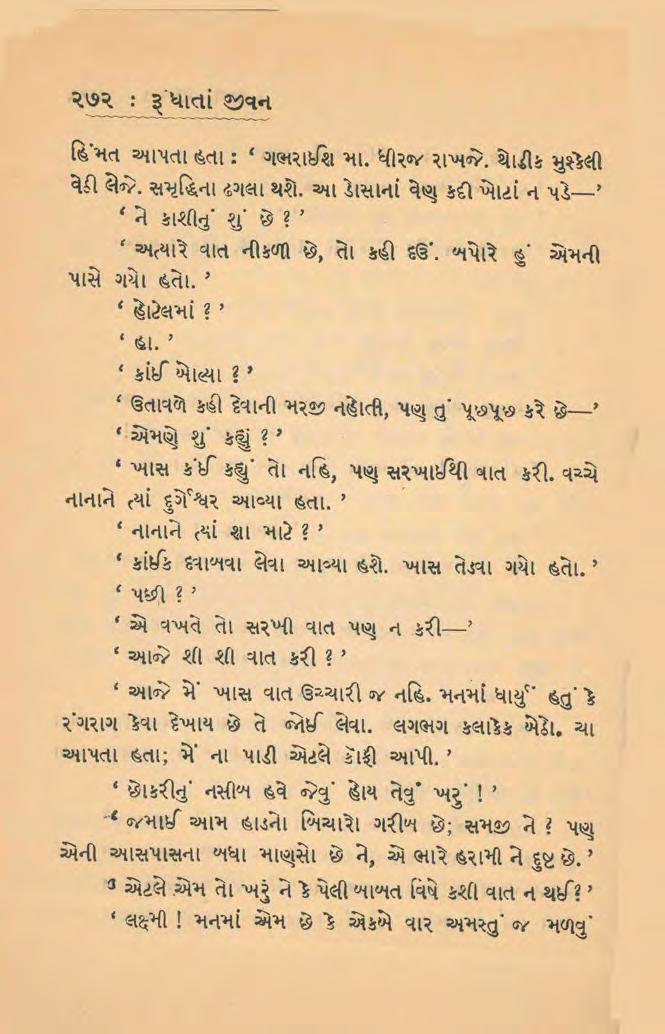 ૨૭૨ : રૂંધાતાં જીવન
હિંમત આપતા હતા : ‘ ગભરાઈશ મા. ધીરજ રાખજે. થોડીક મુશ્કેલી
વેઠી લેજે. સમૃદ્ધિના ઢગલા થશે. આ ડોસાનાં વેણ કદી ખોટાં ન પડે—’
‘ ને કાશીનું શું છે ? ’
‘ અત્યારે વાત નીકળી છે, તો કહી દઉં. બપોરે હું એમની
પાસે ગયો હતો. ’
‘ હોટેલમાં ? ’
‘ હા. ’
‘ કાંઈ બોલ્યા ? ’
‘ ઉતાવળે કહી દેવાની મરજી નહોતી, પણ તું પૂછપૂછ કરે છે—’
‘ એમણે શું કહ્યું ? ’
‘ ખાસ કંઈ કહ્યું તો નહિ, પણ સરખાઈથી વાત કરી. વચ્ચે
નાનાને ત્યાં દુર્ગેશ્વર આવ્યા હતા. ’
‘ નાનાને ત્યાં શા માટે ? ’
‘ કાંઈક દવાબવા લેવા આવ્યા હશે. ખાસ તેડવા ગયો હતો. ’
‘ પછી ? ’
‘ એ વખતે તો સરખી વાત પણ ન કરી—’
‘ આજે શી શી વાત કરી ? ’
‘ આજે મેં ખાસ વાત ઉચ્ચારી જ નહિ. મનમાં ધાર્યું હતું કે
રંગરાગ કેવા દેખાય છે તે જોઈ લેવા. લગભગ કલાકેક બેઠો. ચા
આપતા હતા; મેં ના પાડી એટલે કૉફી આપી. ’
‘ છોકરીનું નસીબ હવે જેવું હોય તેવું ખરું ! ’
‘ જમાઈ આમ હાડનો બિચારો ગરીબ છે; સમજી ને ? પણ
એની આસપાસના બધા માણસો છે ને, એ ભારે હરામી ને દુષ્ટ છે. ’
‘ એટલે એમ તો ખરું ને કે પેલી બાબત વિષે કશી વાત ન થઈ? ’
‘ લક્ષ્મી ! મનમાં એમ છે કે એકબે વાર અમસ્તું જ મળવું